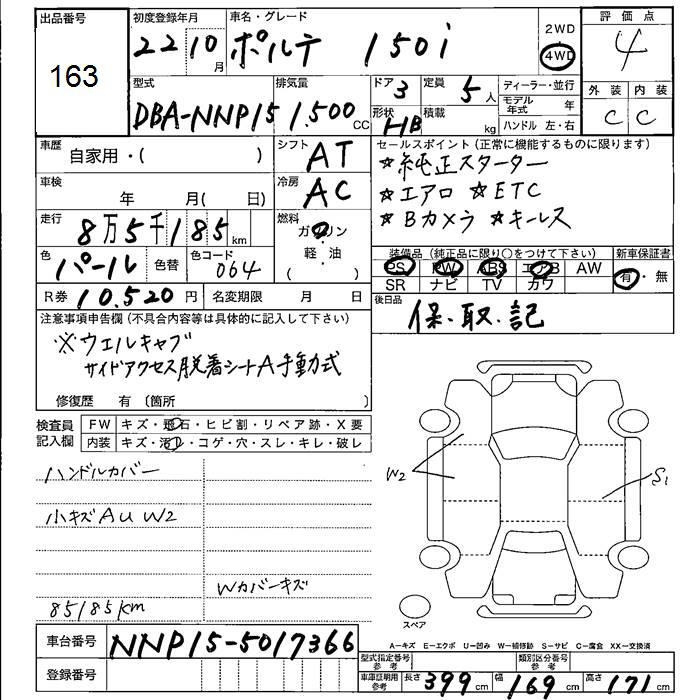 出品番号
163
初度登録年月
22 10 月
車名・グレード
ポルテ 150i
2WD
4WD
評価点
4
外装 内装
C C
型式
DBA-NNP15
排気量
1.500 CC
ドア 3
定員 5人
形状 HB
積載 kg
ディーラー・並行
モデル年式 年
ハンドル 左・右
車歴
自家用・( )
シフト
AT
車検
年 月( 日)
冷房
AC
走行
8万5千185km
燃料
ガソリン
軽・油
( )
色
パール
色替
色コード
064
R券 10.520円
名変期限 月 日
セールスポイント(正常に機能するものに限ります)
☆純正スターター
☆エアロ ☆ETC
☆Bカメラ ☆キーレス
装備品(純正品に限り○をつけて下さい)
PS PW ABS エアB AW
SR ナビ TV カワ
新車保証書
有・無
後日品
保.取.記
注意事項申告欄(不具合内容等は具体的に記入して下さい)
※ウェルキャブ
サイドアクセス脱着シートA手動式
修復歴 有〔箇所 〕
検査員記入欄
FW キズ・飛石・ヒビ割・リペア跡・X要
内装 キズ・汚レ・コゲ・穴・スレ・キレ・破レ
ハンドルカバー
小キズAU W2
Wカバーキズ
85185km
W2
S1
スペア
A−キズ E−エクボ U−凹み W−補修跡 S−サビ C−腐食 XX−交換済
車台番号
NNP15-5017366
登録番号
型式指定番号 参考
類別区分番号 参考
車庫証明用 参考
長さ 399cm
幅 169cm
高さ 171cm